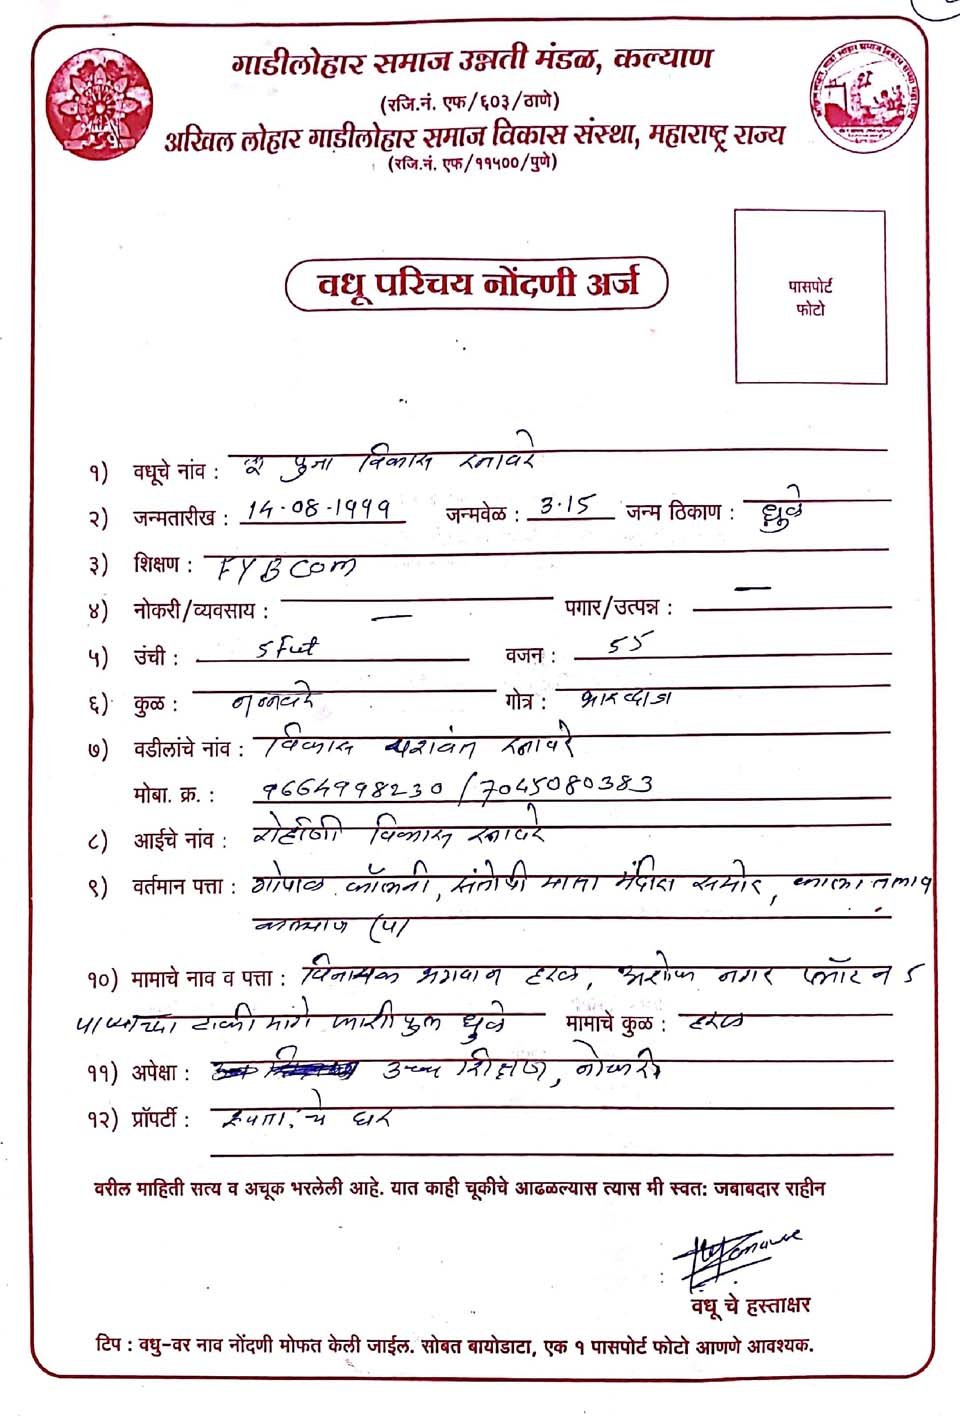 गाडीलोहार समाज उन्नती मंडळ, कल्याण
(रजि.नं. एफ/६०३/ठाणे)
अखिल लोहार गाडीलोहार समाज विकास संस्था, महाराष्ट्र राज्य
(रजि.नं. एफ/११५००/पुणे)
पासपोर्ट
फोटो
वधू परिचय नोंदणी अर्ज
१) वधूचे नांव : पुजा विकास रनावरे
२) जन्मतारीख : 14-08-1999 जन्मवेळ : 3.15 जन्म ठिकाण : धुळे
३) शिक्षण : FYBCOM
४) नोकरी/व्यवसाय : — पगार/उत्पन्न : —
५) उंची : 5 Fut वजन : 55
६) कुळ : गोत्र : भारव्दाज
७) वडीलांचे नांव : विकास यशवंत रनावरे
मोबा. क्र. : 9664998230 / 7045080383
८) आईचे नांव : रोहीणी विकास रनावरे
९) वर्तमान पत्ता : गोपाळ कॉलनी, संतोषी माता मंदीरा समोर, काळा तलाव
कल्याण (प)
१०) मामाचे नाव व पत्ता : विनायक भगवान हरळ, अशोक नगर प्लॉट न 5
पाण्याच्या टाकी मागे काशीपुल धुळे मामाचे कुळ : हरळ
११) अपेक्षा : उच्च शिक्षण, नोकरी
१२) प्रॉपर्टी : स्वताःचे घर
वरील माहिती सत्य व अचूक भरलेली आहे. यात काही चूकीचे आढळल्यास त्यास मी स्वत: जबाबदार राहीन
वधू चे हस्ताक्षर
टिप : वधु-वर नाव नोंदणी मोफत केली जाईल. सोबत बायोडाटा, एक १ पासपोर्ट फोटो आणणे आवश्यक.